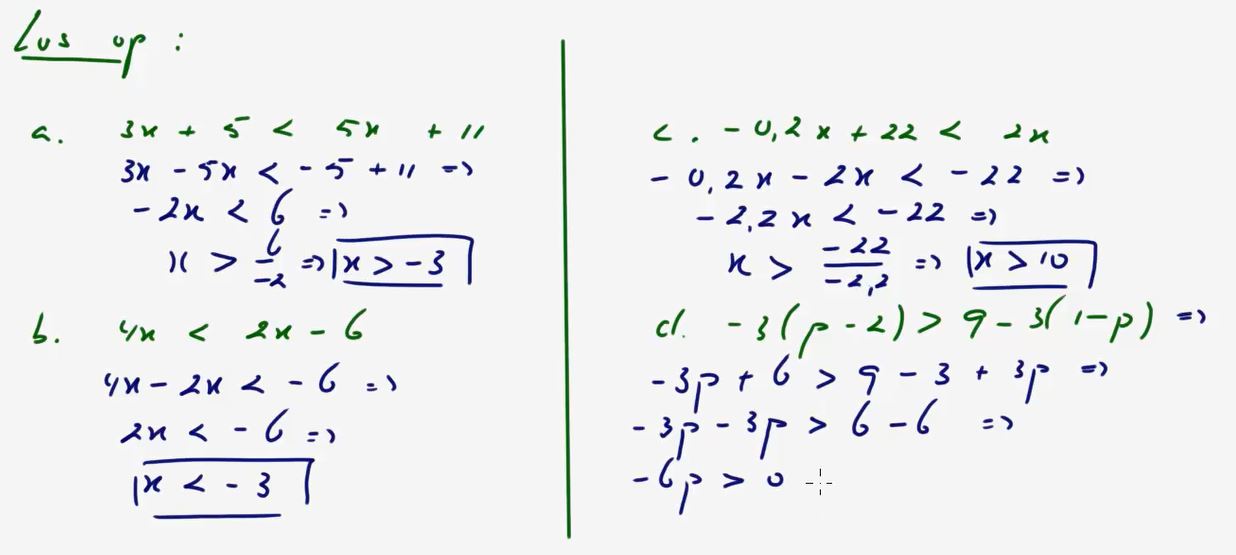 Los op :
a. 3x + 5 < 5x + 11
3x - 5x < - 5 + 11 =>
- 2x < 6 =>
x > 6/-2 => x > -3
b. 4x < 2x - 6
4x - 2x < - 6 =>
2x < - 6 =>
x < - 3
c. - 0,2x + 22 < 2x
- 0,2x - 2x < - 22 =>
- 2,2x < -22 =>
x > -22/-2,2 => x > 10
d. -3(p-2) > 9 - 3(1-p) =>
-3p + 6 > 9 - 3 + 3p =>
- 3p - 3p > 6 - 6 =>
- 6p > 0